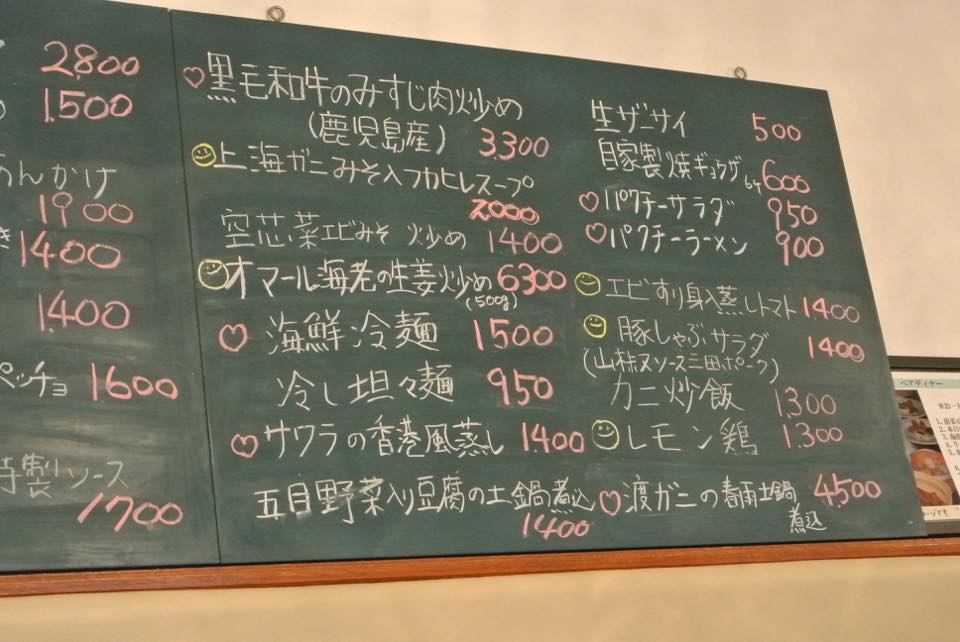 2,800
1,500
あんかけ
1900
1400
1,400
ペッチョ 1600
特製ソース
1700
♡黒毛和牛のみすじ肉炒め
(鹿児島産) 3,300
上海ガニみそ入フカヒレスープ
2000
空芯菜エビみそ 炒め 1400
オマール海老の生姜炒め 6300
(500g)
♡海鮮冷麺 1500
冷し坦々麺 950
♡サワラの香港風蒸し 1,400
五目野菜入り豆腐の土鍋煮込
1400
生ザーサイ 500
自家製焼ギョウザ 6ケ 600
♡パクチーサラダ 950
♡パクチーラーメン 900
エビすり身入蒸しトマト 1400
豚しゃぶサラダ 1400
カニ炒飯 1,300
レモン鶏 1,300
♡渡ガニの春雨土鍋 4,500
煮込
ペアディナー